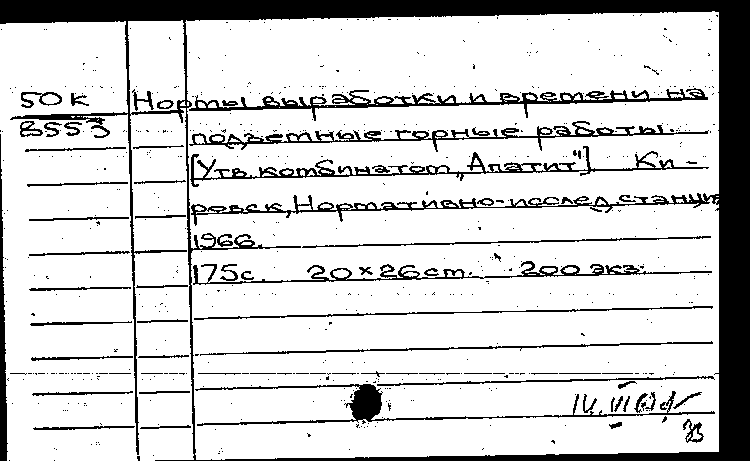 50к Нормы выработки и времени на
В553 подземные горные работы.
[Утв. комбинатом „Апатит"]. Ки-
ровск, Нормативно-исслед. станция
1966.
175с. 20×26 см. 200 экз.